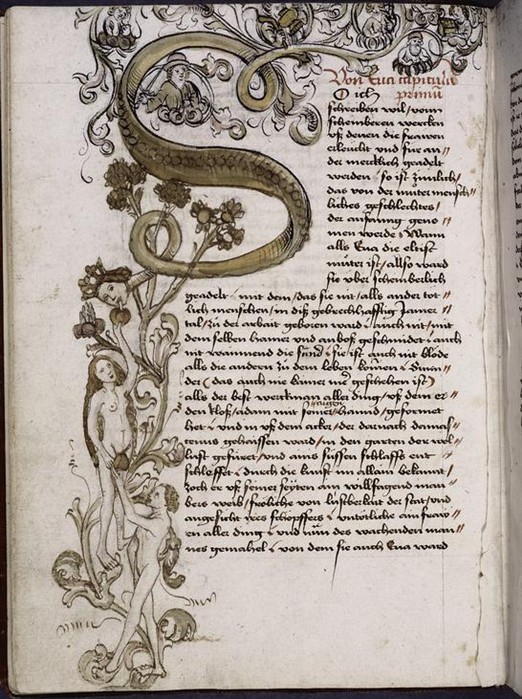 Von Eua capitulu
primu
O ich
schreiben wil / vonn
scheinberen wercken
uß denen die frawen
erleucht vnd für an
der mercklich geadelt
werden / so ist zimlich /
das von der muter mensch
liches geschlechtes /
der anfanng geno
men werde Wann
alls Eua die eltist
müter ist / allso ward
sie vber scheinberlich
geadelt mit dem / das sie nit / alls ander tot
lich menschen / in diß gebrechhafftig Jamer
tal / zu der arbait geboren ward auch nit / mit
dem selben hamer vnd anboß geschmidet auch
nit wainnend die sund sie ist auch nit blöde
alls die andern zu dem leben komen Sunn
der das auch nie keiner me geschehen ist
alls der best werckman aller ding / vß dem er
den kloß / adam mit seiner aignen hannd / geformet
het vnd in vß dem acker / der darnach damas
cenus gehaissen ward / in den garten der wol
lust gefüret / vnd ains süssen schlaffs ent
schlefft durch die kunst im allain bekannt /
zoch er vß seiner seyten ain willsagend man
bers weib / fröliche von lustberkait der stat / vnd
angesicht ires schöpffers untötliche ain fraw
en aller ding vnd nun des wachenden man
nes gemahel von dem sie auch Eua ward